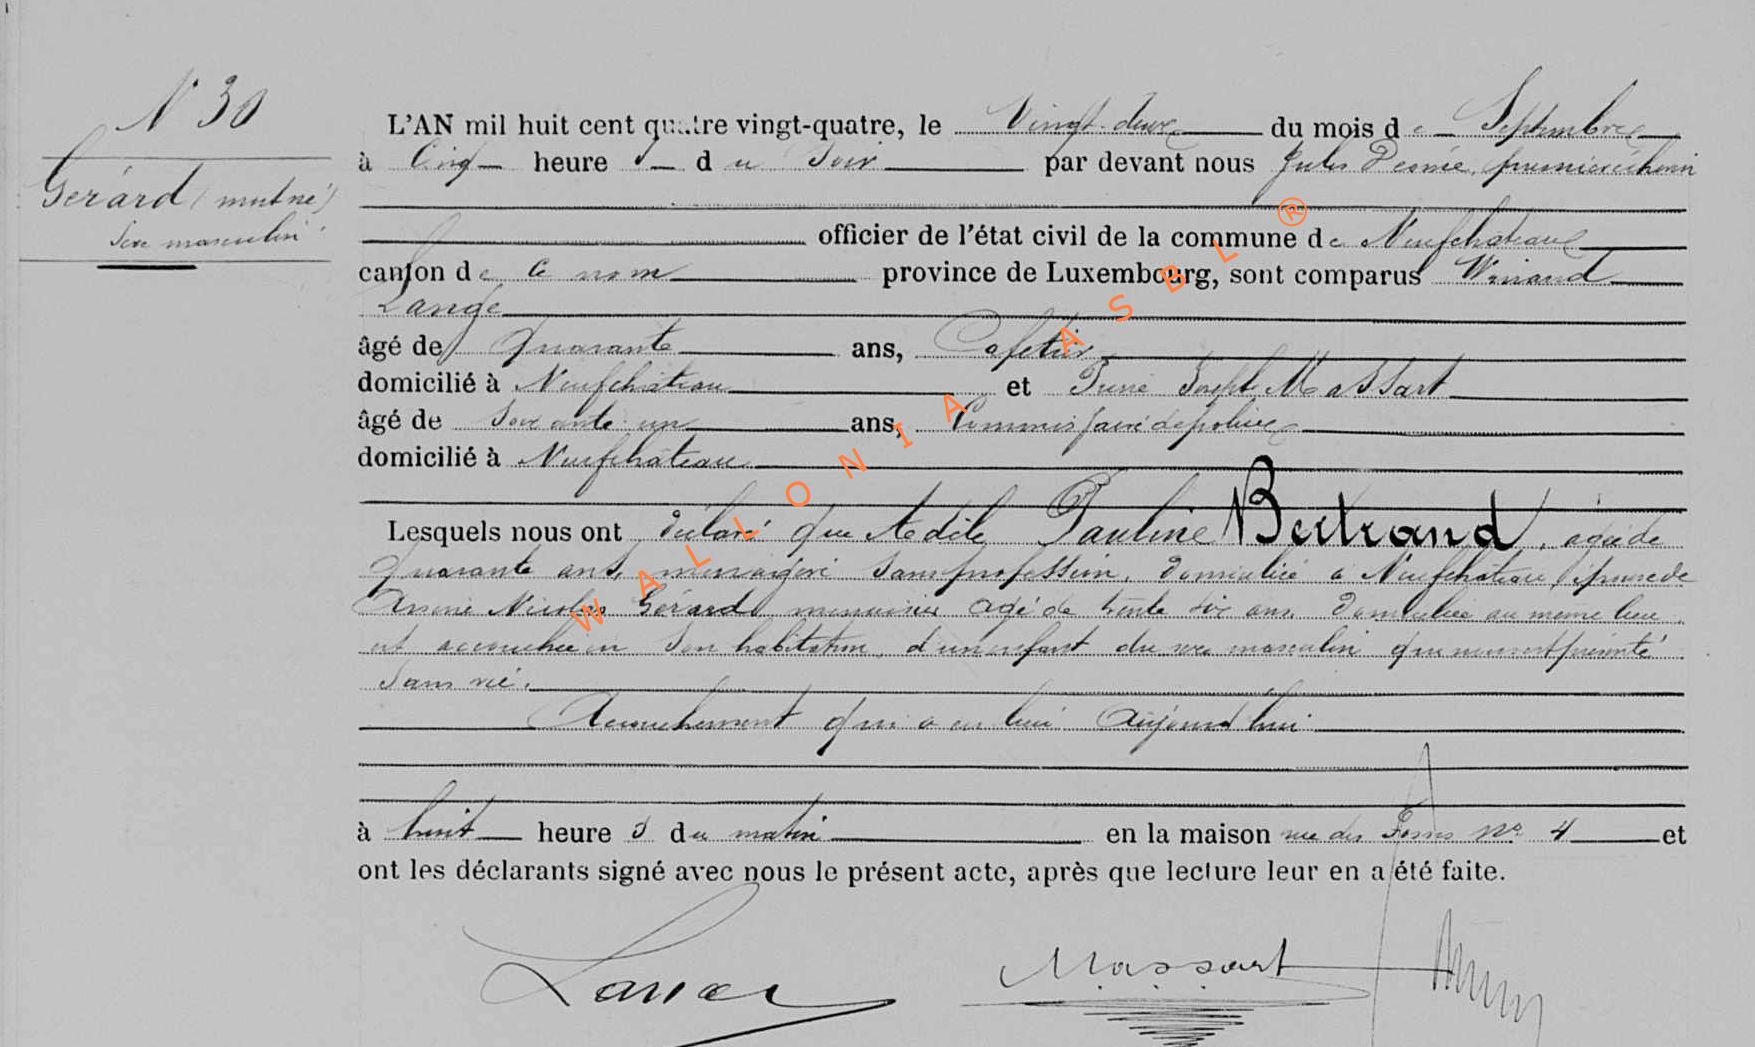 N° 30
Gérard (mort né)
Sexe masculin
L'AN mil huit cent quatre vingt-quatre, le Vingt-deux du mois de Septembre
à Cinq heure s du Soir par devant nous Jules premier échevin
officier de l'état civil de la commune de Neufchâteau
canton de ce nom province de Luxembourg, sont comparus Winand
Lange
âgé de quarante ans, Cafetier
domicilié à Neufchâteau et Pierre Joseph Massart
âgé de Soixante un ans, Commissaire de police
domicilié à Neufchâteau
Lesquels nous ont déclaré que Adèle Pauline Bertrand, agée de
quarante ans, ménagère sans profession, domiciliée à Neufchâteau, épouse de
Nicolas Gérard menuisier agé de trente six ans, domicilié au même lieu
est accouchée en son habitation, d'un enfant du sexe masculin qui nous est présenté
sans vie.
Accouchement qui a eu lieu Aujourd'hui
à huit heure s du matin en la maison rue des No 4 et
ont les déclarants signé avec nous le présent acte, après que lecture leur en a été faite.
Lange Massart
WALLONIA ASBL ®